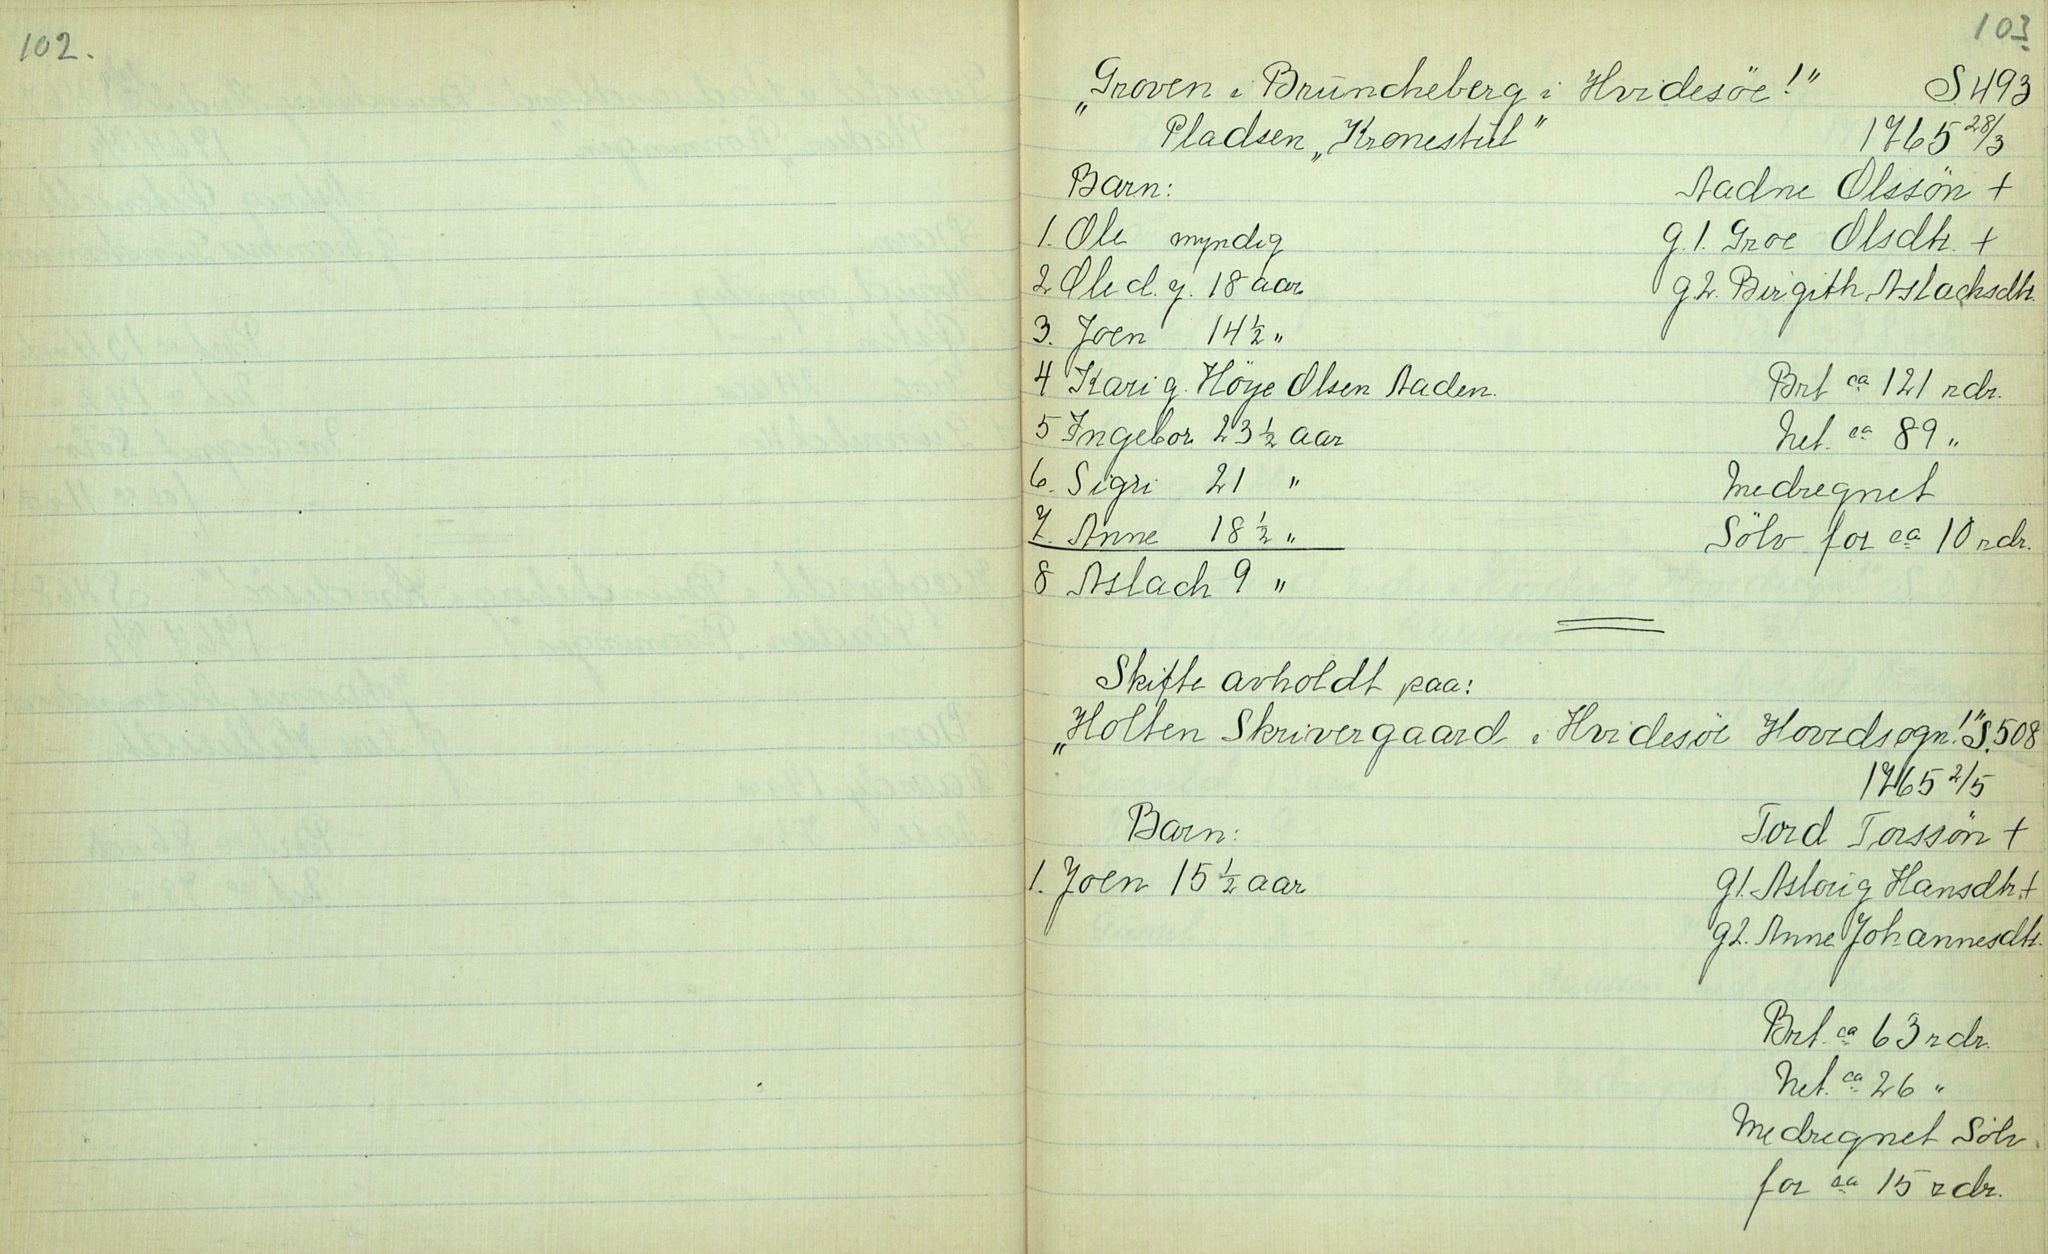 102.
103
„Groven i Brüncheberg i Hvidesöe!" S 493
Pladsen „Kronestül" 1765 28/3
Barn: Aadne Olssön +
1. Ole myndig g.1. Groe Olsdtr. +
2 Ole d. y. 18 aar g.2. Birgith Aslachsdtr.
3. Joen 14 ½ "
4 Kari g. Höye Olsen Aaden. Brt ca 121 rdr.
5 Ingebor 23 ½ aar Net. ca 89 "
6. Sigri 21 " Medregnet
7. Anne 18 ½ " Sölv for ca 10 rdr.
8 Aslach 9 "
Skifte avholdt paa:
„Holten Skrivergaard i Hvidesöe Hovedsogn!" S. 508
1765 2/5
Barn: Tord Torssön +
1. Joen 15 ½ aar g1. Aslovig Hansdtr. +
g2. Anne Johannesdtr.
Brt. ca 63 rdr.
Net. ca 26 "
Medregnet Sölv
for ca 15 rdr.